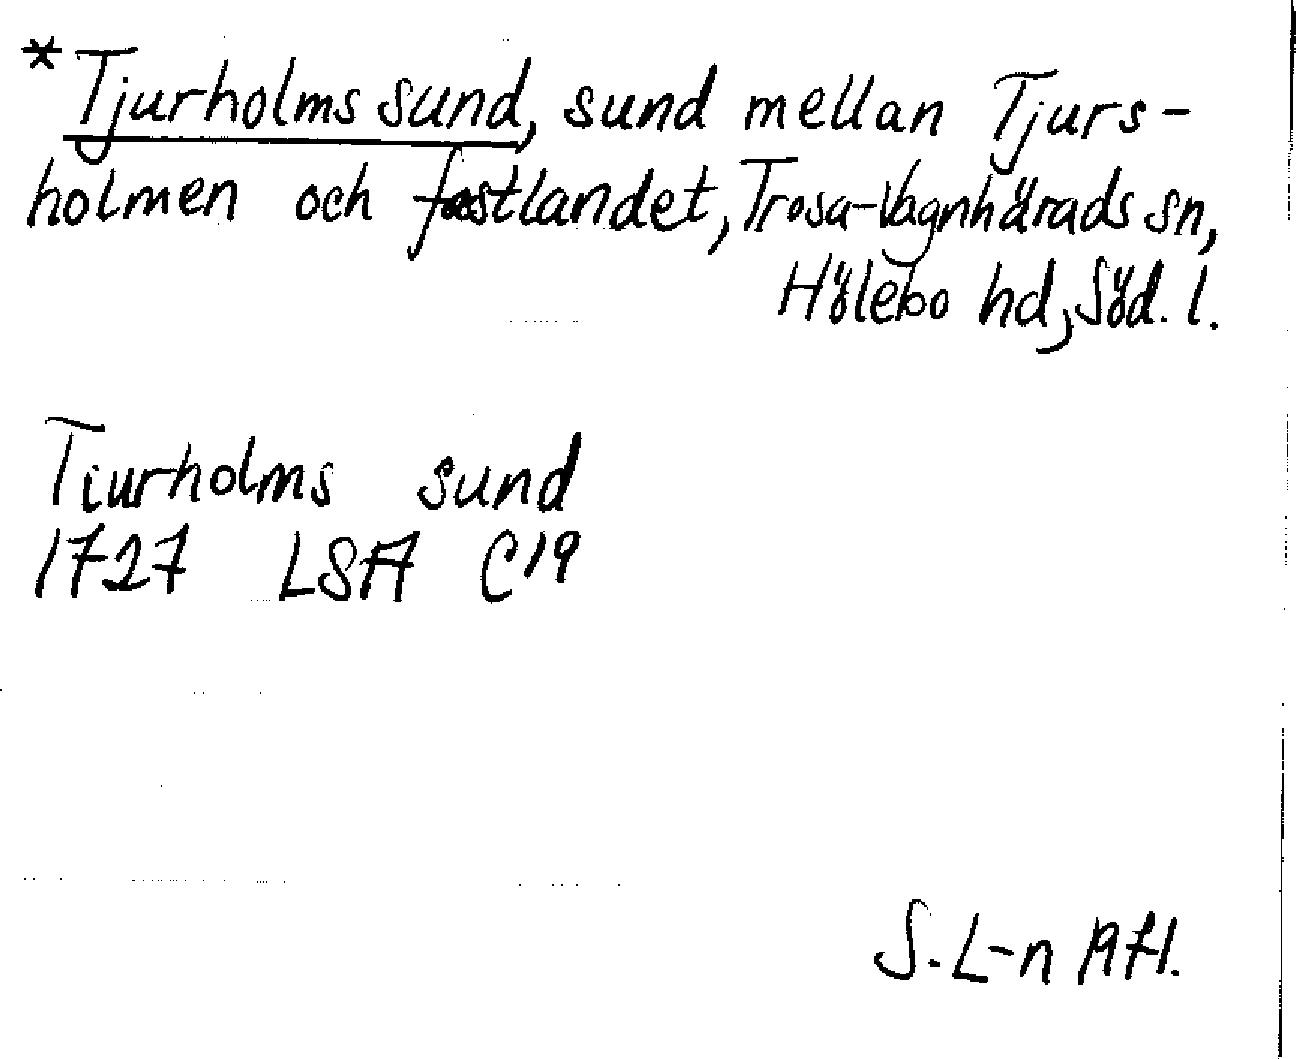 *Tjurholmssund, sund mellan Tjurs-
holmen och fastlandet, Trosa-Vagnhärads sn,
Hölebo hd, Söd. l.
Tiurholms sund
1727 LSA C19
S. L-n 1971.